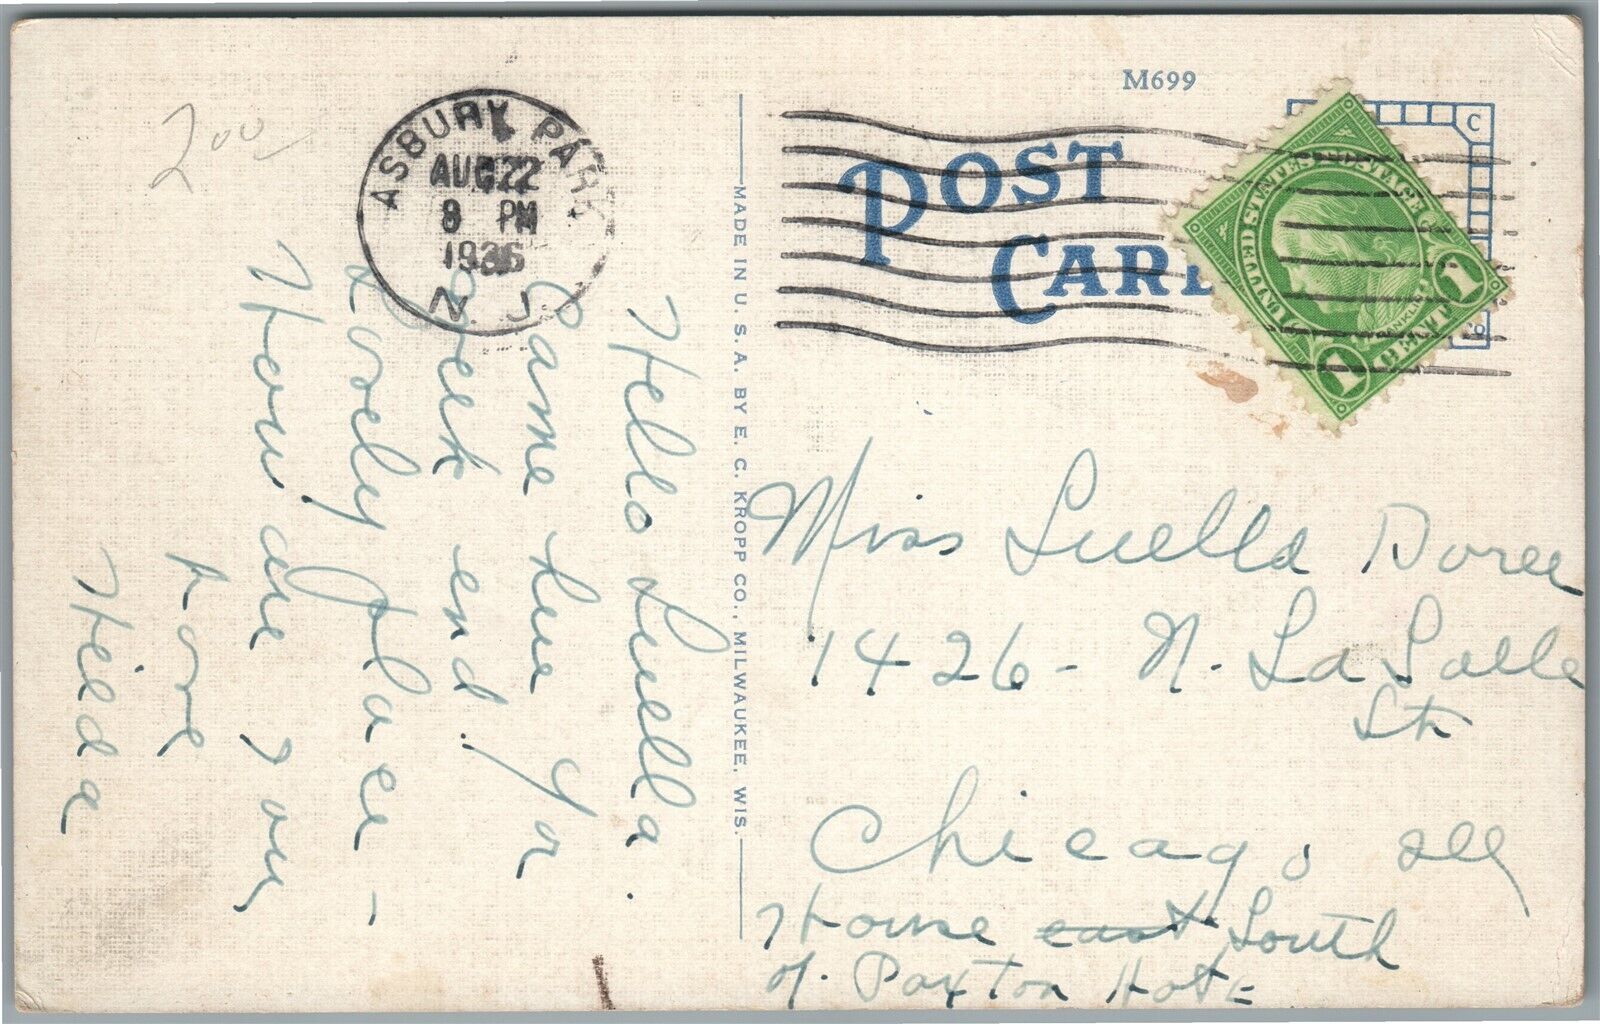 2.00
ASBURY PARK
AUG 22
8 PM
1936
N. J.
M699
POST
CARD
C
Co
UNITED STATES POSTAGE
FRANKLIN
1 CENT 1
Hello Luella.
Came hue for
week end.
Lovely place -
How are you
Love
Hilda
MADE IN U. S. A. BY E. C. KROPP CO., MILWAUKEE, WIS.
Miss Luella Doree
1426 - N. La Salle
St
Chicago Ill
House east South
of. Paxton HotE